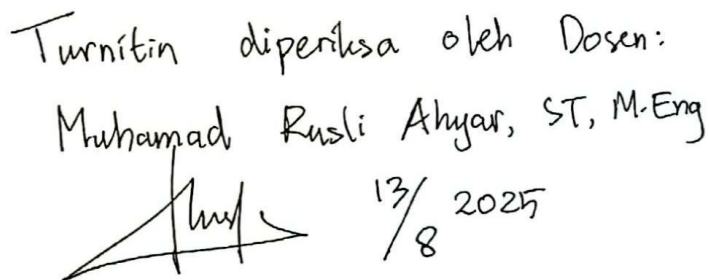 Turnitin diperiksa oleh Dosen:
Muhamad Rusli Ahyar, ST, M.Eng
13/8 2025